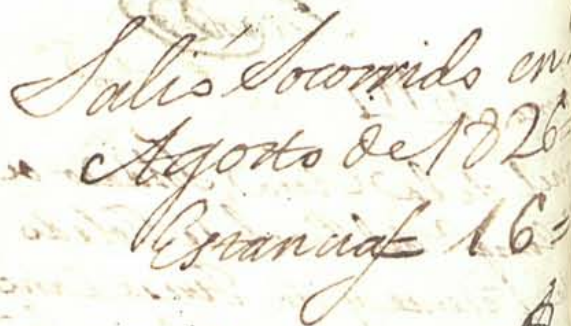 Salió Socorrido en
Agosto de 1826
Estancias 16=